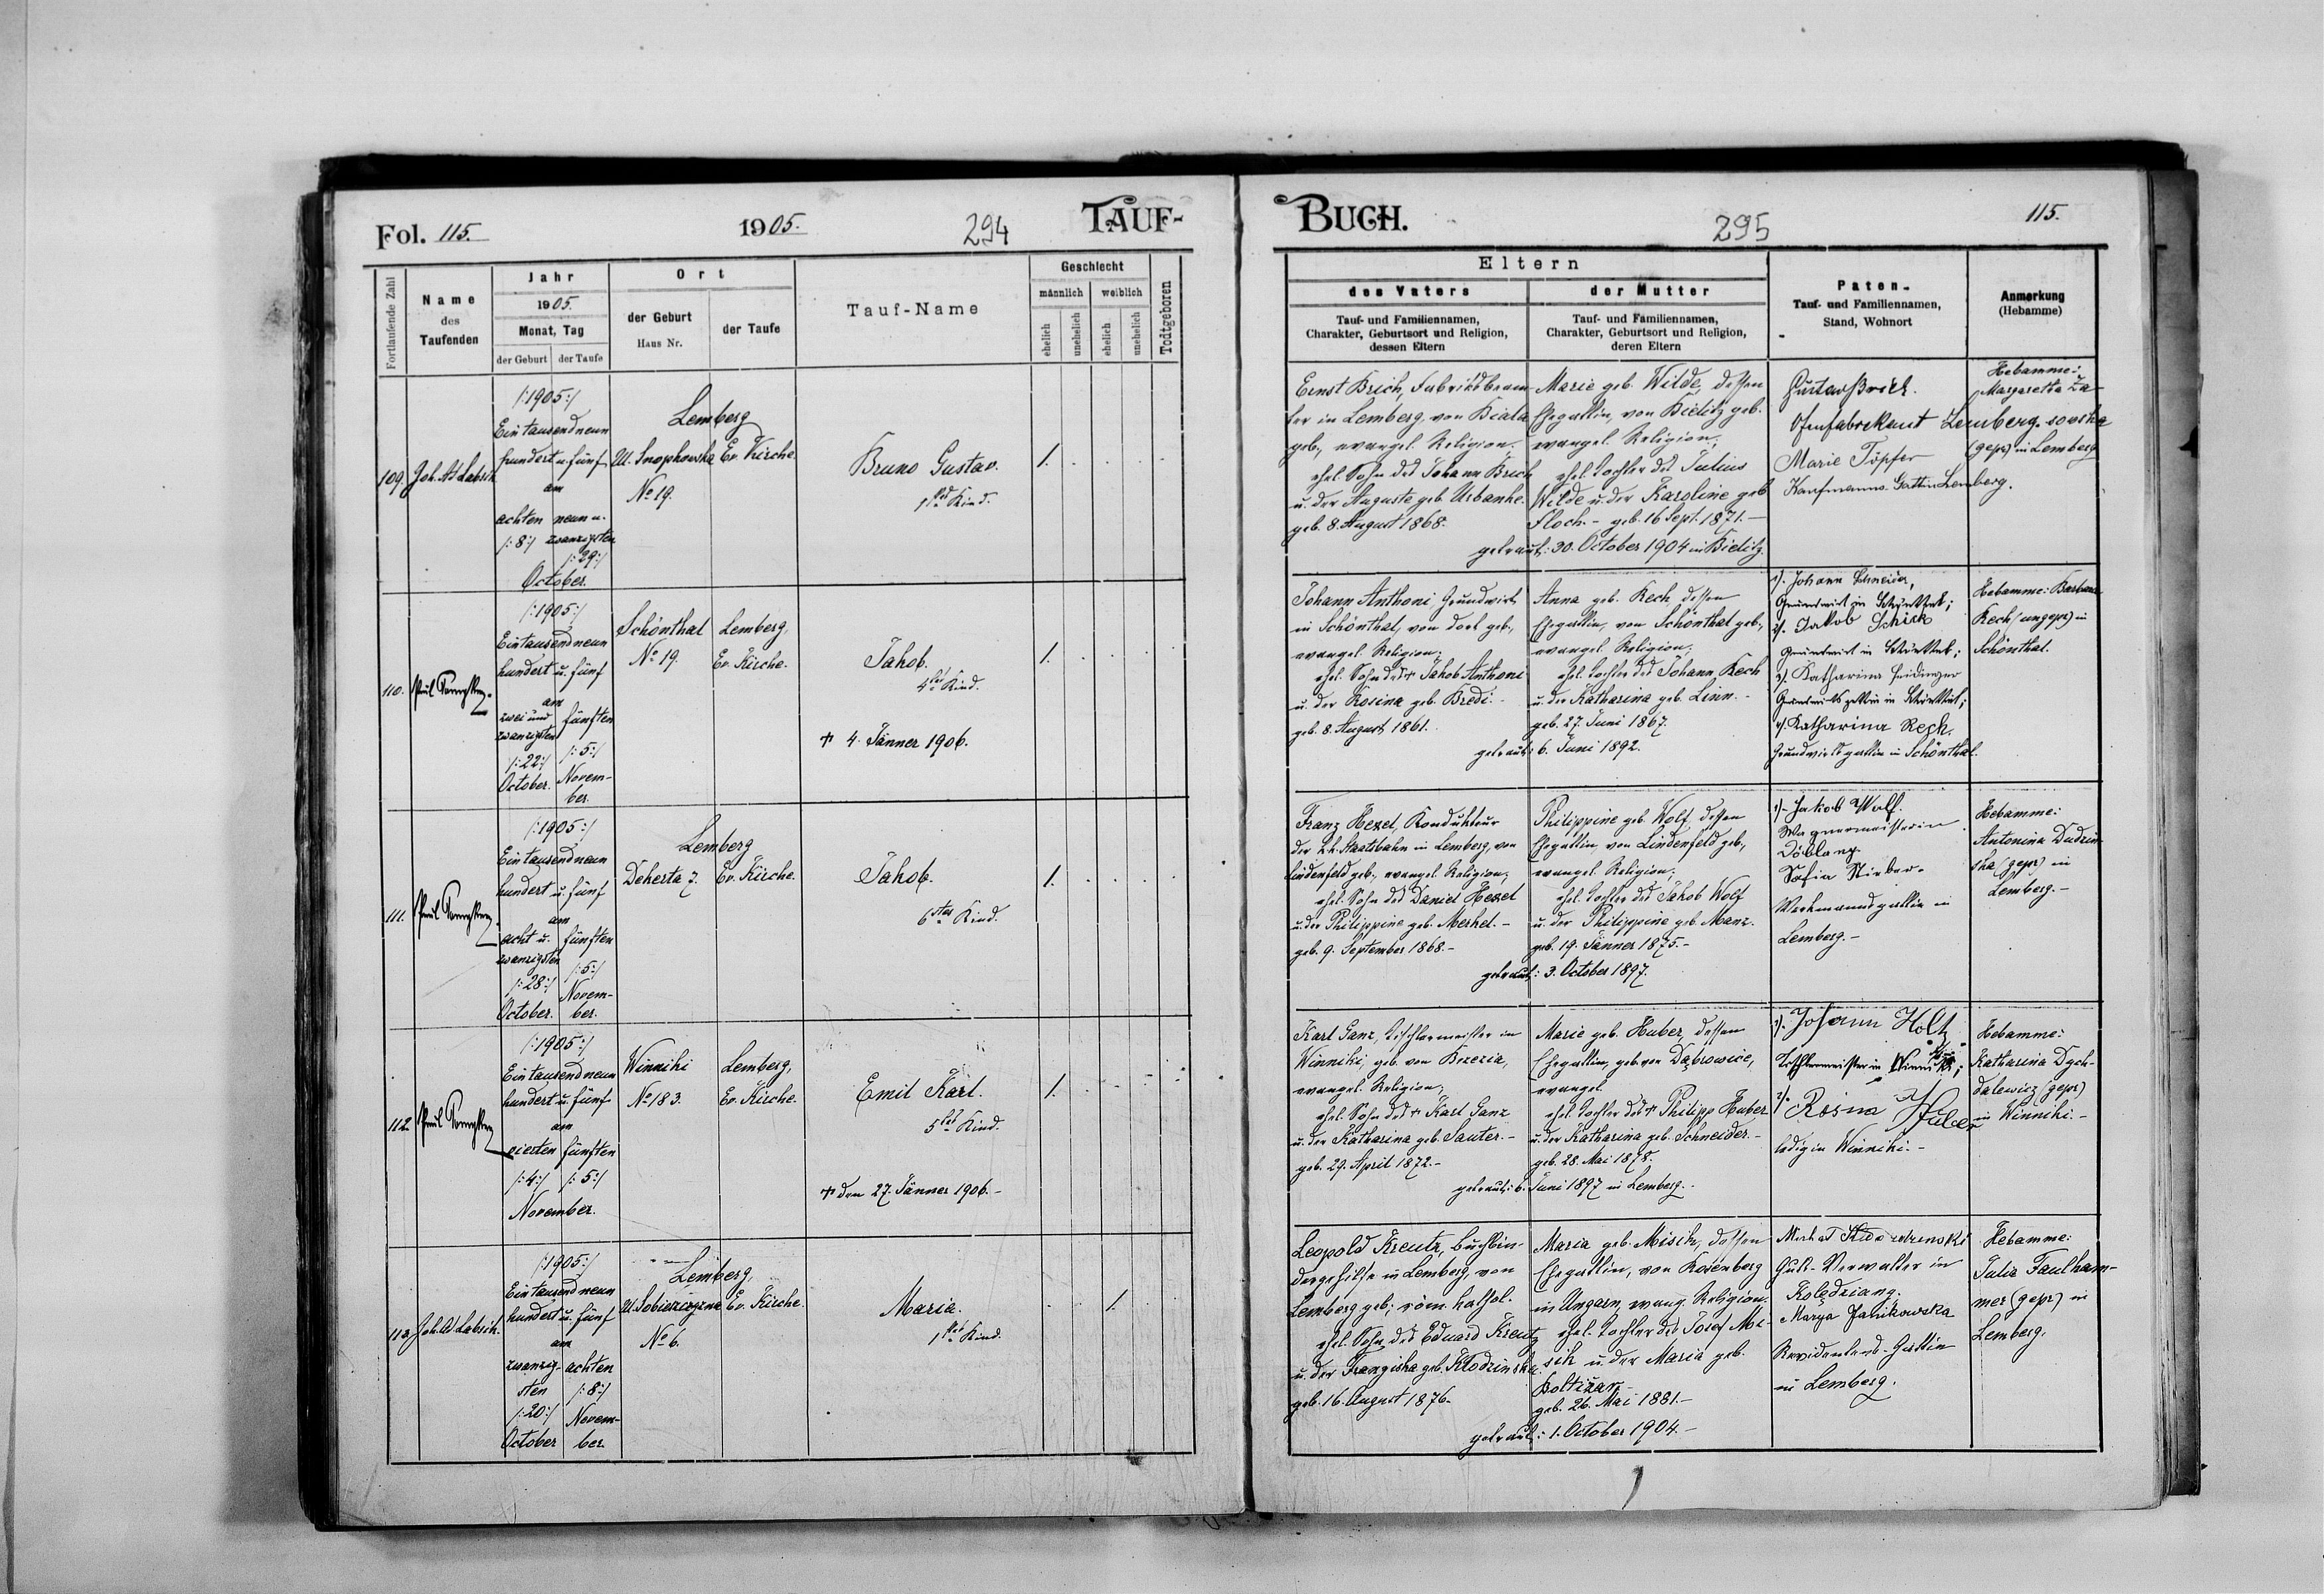 Fol. 115.
1905.
294
TAUF-
Fortlaufende Zahl
Name
des
Taufenden
Jahr
1905.
Monat, Tag
der Geburt
der Taufe
Ort
der Geburt
Haus Nr.
der Taufe
Tauf-Name
Geschlecht
männlich
weiblich
ehelich
unehelich
ehelich
unehelich
Todtgeboren
109.
/:1905:/
Ein tausend neun
hundert u. fünf
am
achten
/:8:/
neun u.
zwanzigsten
/:29:/
October.
Lemberg
Ul. Snopkowska
No 19.
Ev. Kirche.
Bruno Gustav.
1tes Kind.
1.
110.
/:1905:/
Ein tausend neun
hundert u. fünf
am
zwei und
zwanzigsten
/:22:/
October.
fünften
/:5:/
Novem-
ber.
Schönthal
No 19.
Lemberg,
Ev. Kirche.
Jakob.
Kind.
† 4. Jänner 1906.
1.
111.
/:1905:/
Ein tausend neun
hundert u. fünf
am
acht u.
zwanzigsten
/:28:/
October.
fünften
/:5:/
Novem-
ber.
Lemberg
Dekerta 7.
Ev. Kirche.
Jakob.
6tes Kind.
1.
112.
/:1905:/
Ein tausend neun
hundert u. fünf
am
vierten
/:4:/
fünften
/:5:/
November.
Winniki
No 183.
Lemberg,
Ev. Kirche.
Emil Karl.
5tes Kind.
† den 27. Jänner 1906.-
1.
113.
/:1905:/
Ein tausend neun
hundert u. fünf
am
zwanzig-
sten
/:20:/
October
achten
/:8:/
Novem-
ber.
Lemberg,
No 6.
Ev. Kirche.
Maria.
1tes Kind.
1.
BUCH.
295
115.
Eltern
des Vaters
Tauf- und Familiennamen,
Charakter, Geburtsort und Religion,
dessen Eltern
der Mutter
Tauf- und Familiennamen,
Charakter, Geburtsort und Religion,
deren Eltern
Paten-
Tauf- und Familiennamen,
Stand, Wohnort
Anmerkung
(Hebamme)
Ernst Brich, Fabriksbeam-
ter in Lemberg, von Biala
geb., evangel. Religion.
ehel. Sohn des Johann Brich
u. der Auguste geb. Urbanke.
geb. 8. August 1868.
Marie geb. Wilde, dessen
Ehegattin, von Bielitz geb.
evangel. Religion;
ehel. Tochter des Julius
Wilde u. der Karoline geb.
Floch.- geb. 16 Sept. 1871.-
getraut: 30. October 1904 in Bielitz.
Gustav Brich.
Ofenfabrikant Lemberg.
Marie Töpfer
Kaufmanns-Gattin Lemberg.
Hebamme:
Margaretha Za-
(gepr) in Lemberg
Johann Anthoni Grundwirt
in Schönthal, von dort geb.,
evangel. Religion;
ehel. Sohn des † Jakob Anthoni
u. der Rosina geb. Bredi.
geb. 8. August 1861.
Anna geb. Kech dessen
Ehegattin, von Schönthal geb.,
evangel. Religion;
ehel. Tochter des Johann Kech
u. der Katharina geb. Linn.-
geb. 27. Juni 1867.
getraut: 6. Juni 1892.
1). Johann Schneider,
Grundwirt in
2). Jakob Schick
Grundwirt in
3). Katharina
4). Katharina Rech.
Grundwirtsgattin in Schönthal.
Hebamme: Barbara
Kech (ungepr) in
Schönthal.
Franz Hexel, Kondukteur
der k.k. Staatsbahn in Lemberg, von
Lindenfeld geb., evangel. Religion;
ehel. Sohn des Daniel Hexel
u. der Philippine geb. Merkel.-
geb. 9. September 1868.-
Philippine geb. Wolf, dessen
Ehegattin, von Lindenfeld geb.,
evangel. Religion;
ehel. Tochter des Jakob Wolf
u. der Philippine geb. Manz.
geb. 19. Jänner 1875.-
getraut: 3. October 1897.
1)- Jakob Wolf.
Wagnermeister in
Sofia
Werkmannsgattin in
Lemberg.-
Hebamme:
Antonina Dudzin-
ska (gepr) in
Lemberg.-
Karl Ganz, Tischlermeister in
Winniki, geb. von
evangel. Religion;
ehel. Sohn des † Karl Ganz
u. der Katharina geb. Sauter.-
geb. 29. April 1872.-
Marie geb. Huber, dessen
Ehegattin, geb. von Dąbrowice,
evangel.
ehel. Tochter des † Philipp Huber
u. der Katharina geb. Schneider.-
geb. 28. Mai 1878.
getraut: 6. Juni 1897 in Lemberg.
1). Johann Holtz
Tischlermeister in Winniki;
2). Rosina Huber
ledig in Winniki.-
Hebamme:
Katharina Dych-
dalewicz (gepr)
in Winniki.-
Leopold Kreutz, Buchbin-
dergehilfe in Lemberg, von
Lemberg geb.; röm. kathol.
ehel. Sohn des Eduard Kreutz
u. der Franziska geb. Kłodzinska
geb. 16. August 1876.
Maria geb. Misik, dessen
Ehegattin, von Rosenberg
in Ungarn, evang. Religion.
ehel. Tochter des Josef Mi-
sik u. der Maria geb.
Boltižar
geb. 26. Mai 1881.-
getraut: 1. October 1904.-
Guts-Verwalter in
Marya Janikowska
Revidentens-Gattin
in Lemberg.
Hebamme:
Julia Faulham-
mer (gepr) in
Lemberg.